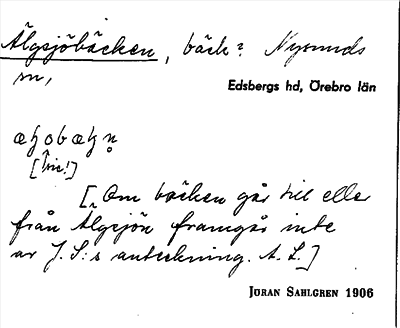 Älgsjöbäcken, bäck? Nysunds
sn,
Edsbergs hd, Örebro län
[hic!]
[Om bäcken går till eller
från Älgsjön framgår inte
av J. S:s anteckning. A. L.]
JÖRAN SAHLGREN 1906